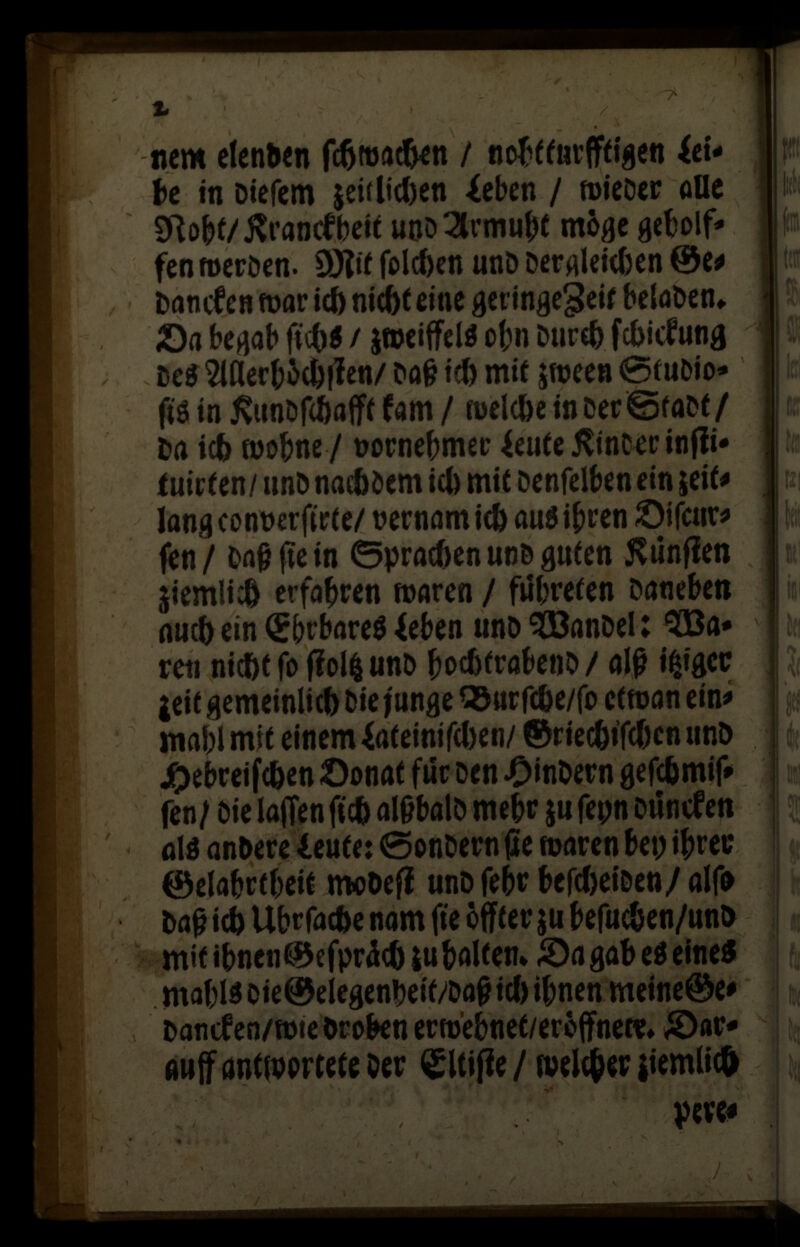 2
nem elenden ſchwachen / nohtturfftigen Lei⸗
be in dieſem zeitlichen Leben / wieder alle
Noht/ Kranckheit und Armuht moͤge geholf⸗
fen werden. Mit ſolchen und dergleichen Ge⸗
dancken war ich nicht eine geringe Zeit beladen.
Da begab ſichs / zweiffels ohn durch ſchickung
des Allerhoͤchſten/ daß ich mit zween Studio⸗
ſis in Kundſchafft kam / welche in der Stadt /
da ich wohne / vornehmer Leute Kinder inſti⸗
tuirten/ und nachdem ich mit denſelben ein zeit⸗
lang converſirte/ vernam ich aus ihren Diſcur⸗
ſen / daß ſie in Sprachen und guten Kuͤnſten
ziemlich erfahren waren / fuͤhreten daneben
auch ein Ehrbares Leben und Wandel: Wa⸗
ren nicht ſo ſtoltz und hochtrabend / alß itziger
zeit gemeinlich die junge Burſche/ſo etwan ein⸗
mahl mit einem Lateiniſchen/ Griechiſchen und
Hebreiſchen Donat fuͤr den Hindern geſchmiſ⸗
ſen/ die laſſen ſich alßbald mehr zu ſeyn duͤncken
als andere Leute: Sondern ſie waren bey ihrer
Gelahrtheit modeſt und ſehr beſcheiden / alſo
daß ich Uhrſache nam ſie oͤffter zu beſuchen/und
mit ihnen Geſpraͤch zu halten. Da gab es eines
mahls die Gelegenheit/daß ich ihnen meine Ge⸗
dancken/wie droben erwehnet/eroͤffnete. Dar⸗
auff antwortete der Eltiſte / welcher ziemlich
pere⸗